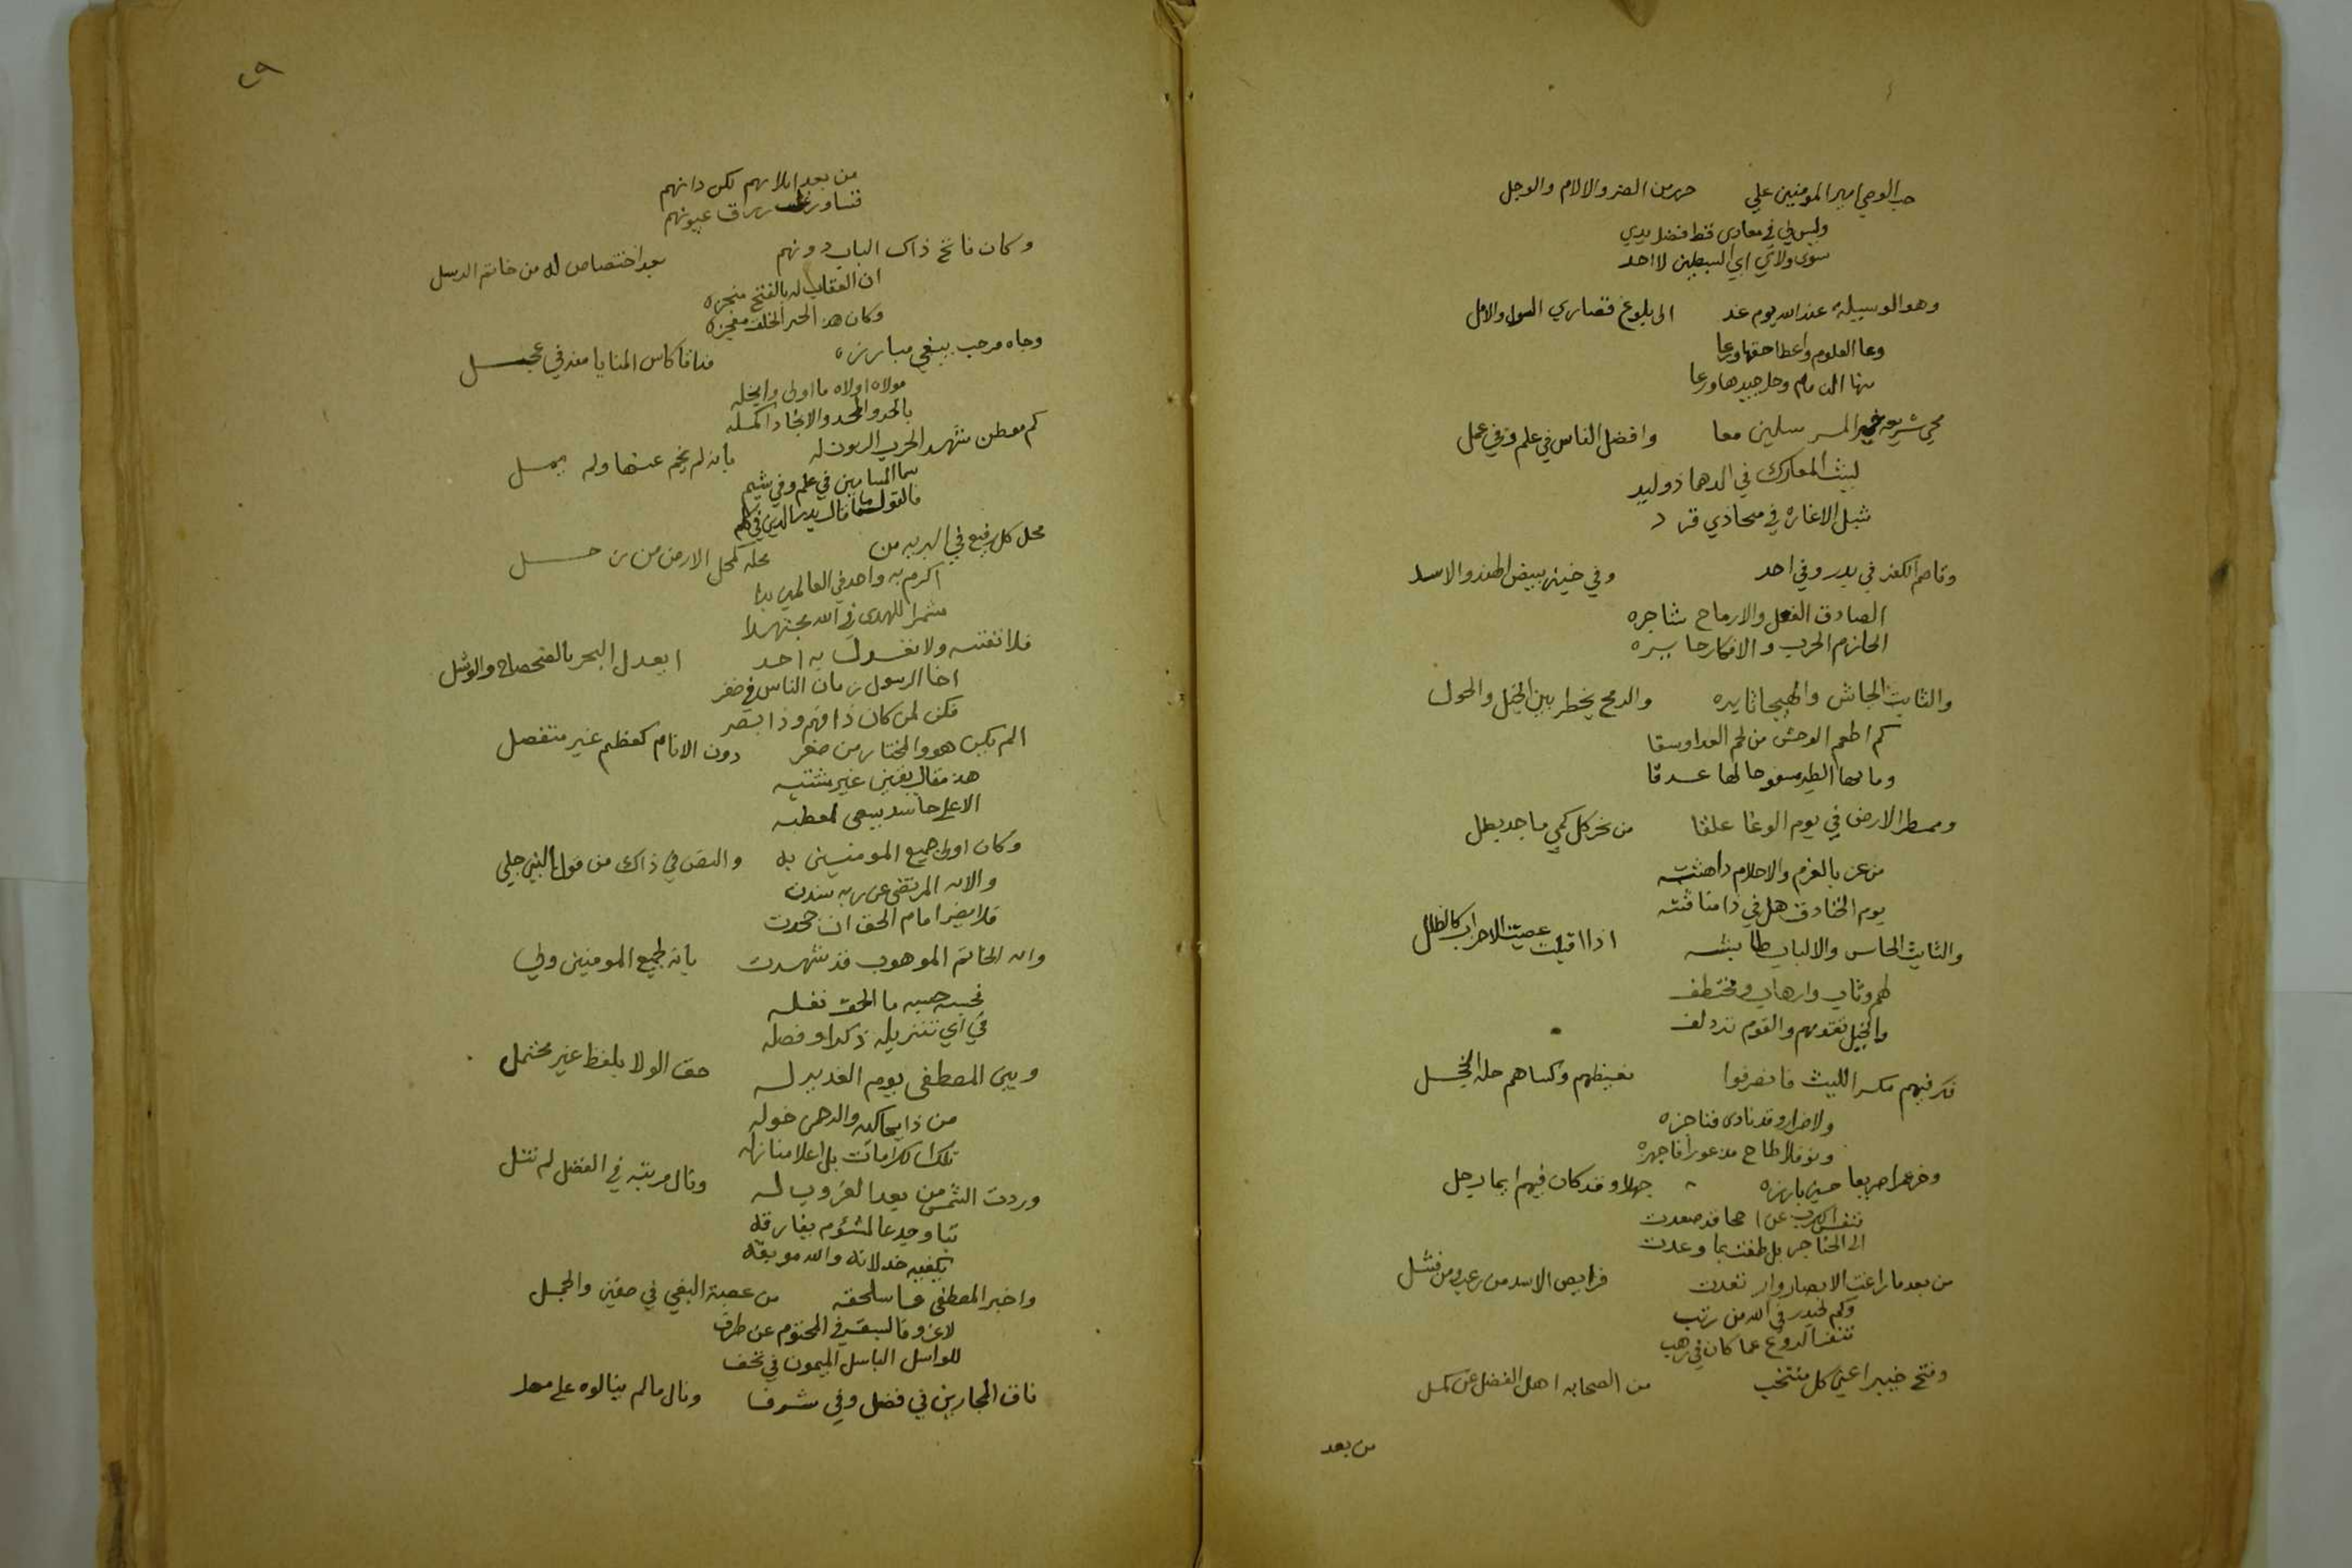 حب الوصي امير المومنين علي حرمن الضر والالام والوجل
وليس لي في معادي قط فضل يدي
سوى ولائي ابي السبطين لا احد
وهو الوسيلة عند الله يوم غد الى بلوغ قصاري السول والامل
وعا العلوم واعطا حقها ورعا
منها الذمام وحل جيدها ورعا
محي شريعة خير المرسلين معا وافضل الناس في علم وفي عمل
ليث المعارك في الدها ذو لبد
شبل الاغاره في
وقاصم الكفر في بدر وفي احد وفي حنين ببيض الهند والاسل
الصادق الفعل والارماح شاجره
الحازم الحرب والافكار حايره
والثابت الجاش والهيجا ثايره والرمح يخطر بين الخيل والخول
كم اطعم الوحش من لحم العدا وسقا
وماها الطير مسفوحا لها غدقا
وممطر الارض في يوم الوغا علقا من نحر كل كمي ماجد بطل
من عن بالعزم والاحلام داهشه
يوم الخنادق هل في ذا مناقشه
والثابت الجاس والالباب طايشه اذا اقبلت عصبت الاحزاب كالظلل
لهم وثاب وارهاب ومختطف
والخيل تقدمهم والقوم تزدلف
فكر فيهم مكر الليث فانصرفوا بغيظهم وكساهم حلة الخجل
ولا ضرار وقد نادى فناجزه
ونوفلا طاح مذعورا فاجهزه
وخر عمرا صريعا حين بارزه جهلا وقد كان فيهم ايما رجل
تنفس الكرب عن
الى الحناجر بل طفت بما وعدت
من بعد ما زاغت الابصار وارتعدت فرايص الاسد من رعب ومن فشل
وكم لحيدر في الله من رتب
تنفس الروع عما كان في رهب
وفتح خيبر اعني كل منتخب من الصحابه اهل الفضل عن كمل
من بعد
٤٩
من بعد ابلائهم لكن دانهم
وكان فاتح ذاك الباب دونهم بعد اختصاص له من خاتم الرسل
ان العقاب له بالفتح منجزه
وكان هذا الحبر الخلق معجزه
وجاه مرحب يبغي مبارزه فذاقا كاس المنايا منه في عجل
مولاه اولاه ما اولى وانحله
بالحمد والمجد والانجاد اكمله
كم موطن شهد الحرب الزبون له بانه لم يخم عنها ولم يمل
سما المسامين في علم وفي شيم
فالقول ما قال بدر الدين في كلم
محل كل رفيع في البريه من محله كمحل الارض من زحل
اكرم به واحد في العالمين بدا
مشمرا للهدى في الله مجتهدا
فلا تقسه ولا تعدل به احد ايعدل البحر بالضحضاح والوشل
اخا الرسول زمان الناس في صغر
فكن لمن كان ذا فهم وذا بصر
الم يكن هو والمختار من صغر دون الانام كعظم غير منفصل
هذا مقال يقين غير مشتبه
وكان اولى جميع المومنين به والنص في ذاك من قول النبي جلي
والاية المرتضى عن ربه سندت
فلا يضر امام الحق ان جحدت
وانه الخاتم الموهوب قد شهدت بانه لجميع المومنين ولي
فحسبه حسبه ما الحق نفله
في آي تنزيله ذكرا وفصله
وبين المصطفى يوم الغدير له حق الولا بلفظ غير محتمل
من ذا يحاكيه والرحمن خوله
تلك الكرامات بل اعلا منازله
وردت الشمس من بعد الغروب له ونال مرتبة في الفضل لم تنل
تبا وجدعا لمشؤم يفارقه
يكفيه خذلانه والله موبقه
واخبر المصطفى عما سلحقه من عصبة البغي في صفين والجمل
لاغرو فالسبق في المحتوم عن طرف
للواسل الباسل الميمون في تحف
فاق المجارين في فضل وفي شرف ونال ما لم ينالوه على مهل